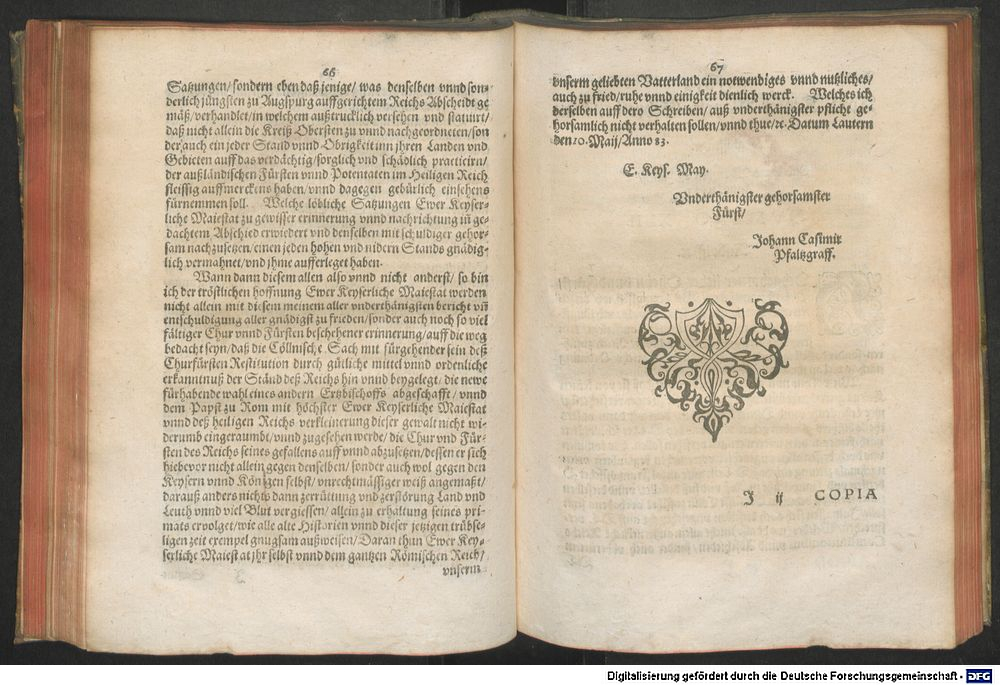 66
Satzungen/sondern eben daß jenige/ was denselben vnnd son-
derlich jüngsten zu Augspurg auffgerichtem Reichs Abscheidt ge
mäß/verhandlet/in welchem außtrucklich versehen vnd statuirt/
daß nicht allein die Kreiß Obersten zu vnnd nachgeordneten/son
der auch ein jeder Stand vnnd Obrigkeit inn jhren Landen vnd
Gebieten auff das verdächtig/sorglich vnd schädlich practiciren/
der außländischen Fürsten vnnd Potentaten im Heiligen Reich
fleissig auffmerckens haben/vnnd dagegen gebürlich einsehens
fürnemmen soll. Welche löbliche Satzungen Ewer Keyser-
liche Maiestat zu gewisser erinnerung vnnd nachrichtung in ge-
dachtem Abschied erwiedert vnd denselben mit schuldiger gehor-
sam nachzusetzen/einen jeden hohen vnd nidern Stands gnädig-
lich vermahnet/vnd jhme aufferleget haben.
Wann dann diesem allen also vnnd nicht anderst/ so bin
ich der tröstlichen hoffnung Ewer Keyserliche Maiestat werden
nicht allein mit diesem meinem aller vnderthänigsten bericht vñ
entschuldigung aller gnädigst zu frieden/sonder auch noch so viel
fältiger Chur vnnd Fürsten beschehener erinnerung/auff die weg
bedacht seyn/daß die Cöllnische Sach mit fürgehender sein deß
Churfürsten Restitution durch gütliche mittel vnnd ordenliche
erkanntnuß der Ständ deß Reichs hin vnnd beygelegt/die newe
fürhabende wahl eines andern Ertzbischoffs abgeschafft/ vnnd
dem Papst zu Rom mit höchster Ewer Keyserliche Maiestat
vnnd deß heiligen Reichs verkleinerung dieser gewalt nicht wi-
derumb eingeraumbt/vnnd zugesehen werde/die Chur vnd Für-
sten des Reichs seines gefallens auff vnnd abzusetzen/dessen er sich
hiebevor nicht allein gegen denselben/sonder auch wol gegen den
Keysern vnnd Königen selbst/vnrechtmässiger weiß angemaßt/
darauß anders nichts dann zerrüttung vnd zerstörung Land vnd
Leuth vnnd viel Blut vergiessen/allein zu erhaltung seines pri-
mats ervolget/wie alle alte Historien vnnd dieser jetzigen trübse-
ligen zeit exempel gnugsam außweisen/Daran thun Ewer Key-
serliche Maiestat jhr selbst vnnd dem gantzen Römischen Reich/
vnserm
67
vnserm geliebten Vatterland ein notwendiges vnnd nutzliches/
auch zu fried/ruhe vnnd einigkeit dienlich werck. Welches ich
derselben auff dero Schreiben/auß vnderthänigster pflicht ge-
horsamlich nicht verhalten sollen/vnnd thue/ec. Datum Lautern
den 10. Maij/Anno 83.
E. Keys. May.
Vnderthänigster gehorsamster
Fürst/
Johann Casimir
Pfaltzgraff.
J ij COPIA
Digitalisierung gefördert durch die Deutsche Forschungsgemeinschaft - DFG